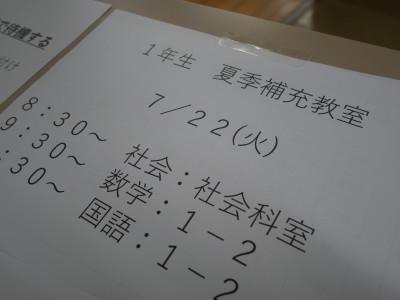 で待機する
付け
1年生　夏季補充教室
7／22(火)
8：30～　社会：社会科室
9：30～　数学：1－2
：30～　国語：1－2